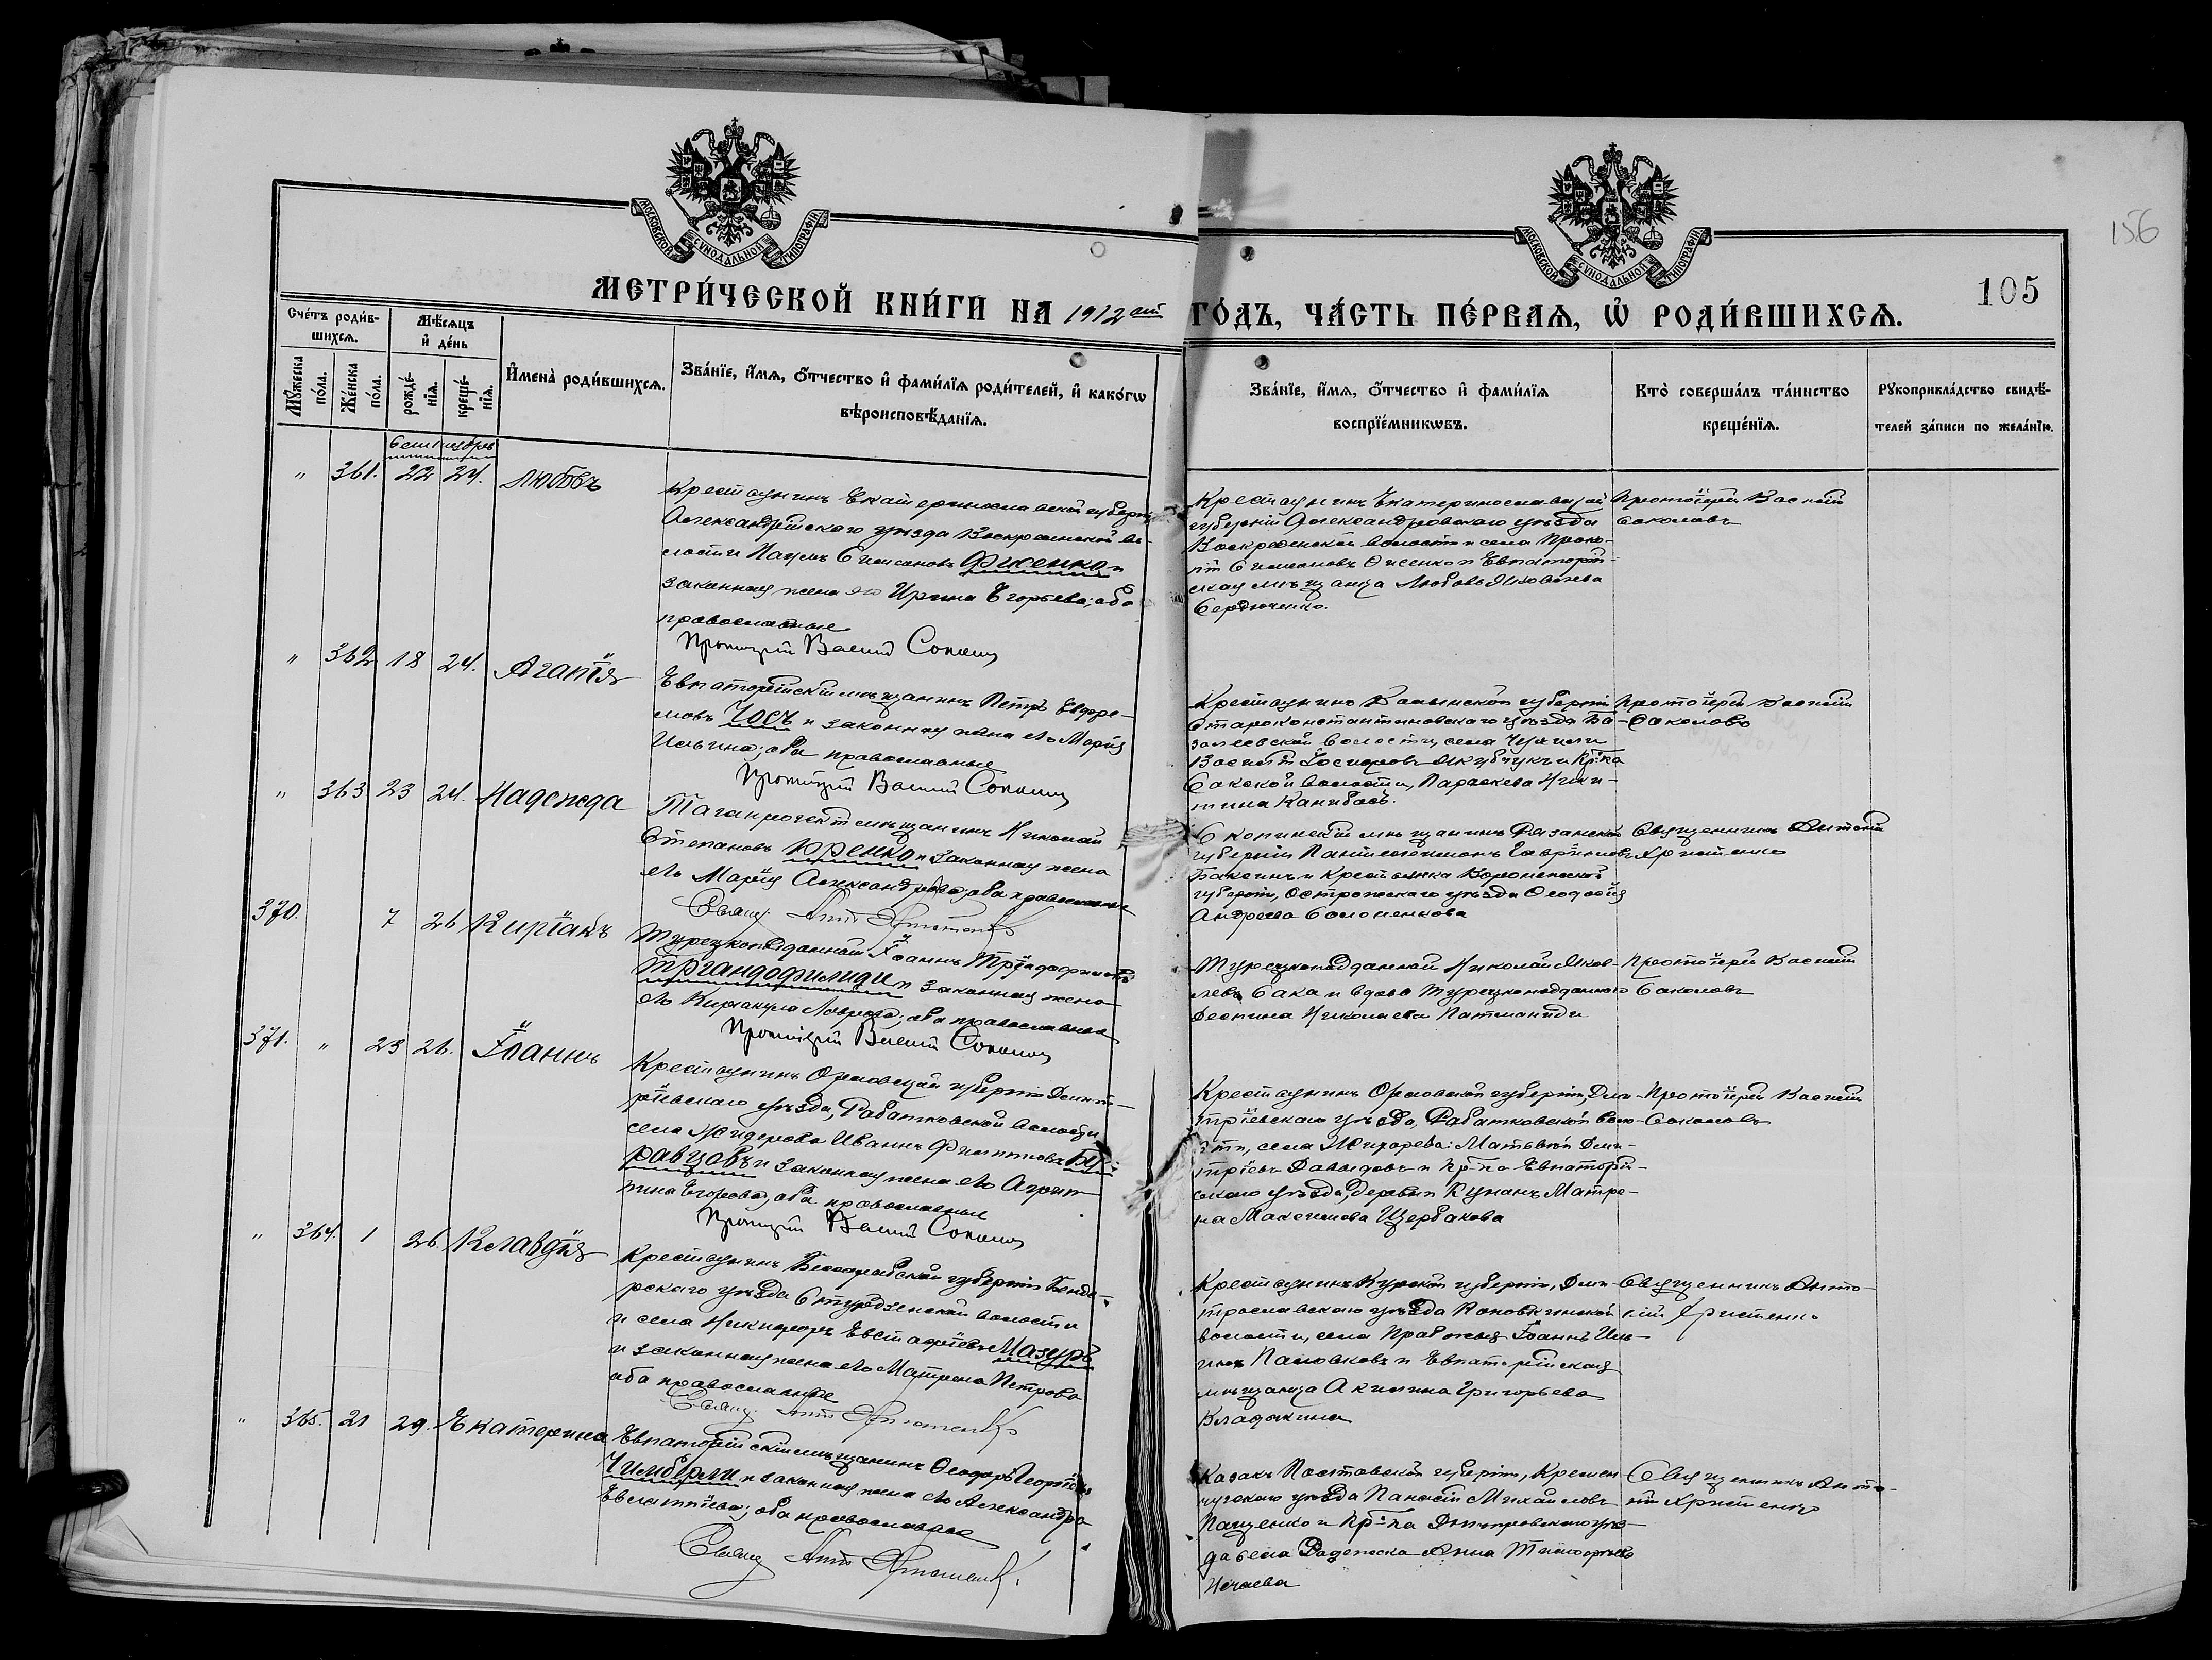 МОСКОВСКОЙ СѴНОДАЛЬНОЙ ТИПОГРАФІИ
МОСКОВСКОЙ СѴНОДАЛЬНОЙ ТИПОГРАФІИ
156
105
МЕТРИ́ЧЕСКОЙ КНИ́ГИ НА 1912 ГО́ДЪ, ЧА́СТЬ ПЕ́РВАѦ, Ѡ҆ РОДИ́ВШИХСѦ.
Сче́тъ роди́в-
шихсѧ.
Мѣ́сѧцъ
и҆ де́нь
Мꙋ́жеска по́ла.
Же́нска по́ла.
рожде́-
нїѧ.
креще́-
нїѧ.
И҆мена̀ роди́вшихсѧ.
Зва́нїе, и҆́мѧ, ѻ҆́тчество и҆ фами́лїѧ роди́телей, и҆ како́гѡ
вѣроисповѣ́данїѧ.
Зва́нїе, и҆́мѧ, ѻ҆́тчество и҆ фами́лїѧ
воспрїе́мникѡвъ.
Кто̀ соверша́лъ та́инство
креще́нїѧ.
Рꙋкоприкла́дство свидѣ́-
телей за́писи по жела́нїю.
Сентябрь
" 361. 22 24. Любовь
Крестьянинъ Екатеринославской губерніи
Александрійского уѣзда Воскресенской во-
лости Наумъ Симоновъ Фисенко и
законная жена его Ирина Егорьева; оба
православные
Протоіерей Василій Соколовъ
Крестьянинъ Екатеринославской
губерніи Александровскаго уѣзда
Воскресенской волости и села Проко-
пій Симоновъ Фисенко и Евпаторій-
ская мѣщанка Любовь Яковлева
Сердюченко.
Протоіерей Василій
Соколовъ
" 362 18 24. Агапія
Евпаторійскій мѣщанинъ Петръ Евфре-
мовъ Чосъ и законная жена его Марія
Ильина; оба православные
Протоіерей Василій Соколовъ
Крестьянинъ Волынской губерніи
Староконстантиновскаго уѣзда Ба-
залеевской волости, села
Василій Іосифовъ Якубчукъ и Кр-ка
Сакской волости, Параскева Ники-
тина
Протоіерей Василій
Соколовъ
" 363 23 24. Надежда
Таганрогскій мѣщанинъ Николай
Степановъ Юренко и законная жена
его Марія Александрова; оба православные
Свящ. Ант. Христенко
Скопинскій мѣщанинъ Рязанской
губерніи Пантелеимонъ Гавриловъ
Бакинъ и Крестьянка Воронежской
губерніи, Острожскаго уѣзда Ѳеодосія
Андреева Солоненкова
Священникъ Антоній
Христенко
370. 7 26 Киріакъ
Турецкоподданный Іоаннъ
Тріандофилиди и законная жена
его Киріакула; оба православные
Протоіерей Василій Соколовъ
Турецкоподданный Николай Яков-
левъ Сака и вдова Турецкоподданнаго
Деспина Николаева Патманиди
Протоіерей Василій
Соколовъ
371. " 23 26. Іоаннъ
Крестьянинъ Орловской губерніи Дмит-
ріевскаго уѣзда, Работковской волости
села Жидерова Иванъ Филипповъ Бу-
равцовъ и законная жена его Агрип-
пина Егорова; оба православные
Протоіерей Василій Соколовъ
Крестьянинъ Орловской губерніи, Дми-
тріевскаго уѣзда, Работковской воло-
сти, села Жихарева: Матвѣй Дми-
тріевъ Давыдовъ и Кр-ка Евпаторій-
скаго уѣзда, деревни Кунанъ Матре-
на Максимова Щербакова
Протоіерей Василій
Соколовъ
" 364. 1 26. Клавдія
Крестьянинъ Бессарабской губерніи Бенде-
рскаго уѣзда Стурдзенской волости
и села Никифоръ Евстафіевъ Мазуръ
и законная жена его Матрена Петрова
оба православные
Свящ. Ант. Христенко
Крестьянинъ Курской губерніи, Дми-
трославскаго уѣзда волости, села Іоаннъ Иль-
инъ Паловковъ и Евпаторійская
мѣщанка Акилина Григорьева
Кладакина
Священникъ Анто-
ній Христенко
" 365. 21 29. Екатерина
Евпаторійскій мѣщанинъ Ѳеодоръ Георгіевъ
Чимберли и законная жена его Александра
Евлампіева; оба православные
Свящ. Ант. Христенко
Казакъ Полтавской губерніи, Кремен-
чугскаго уѣзда Панасій Михайловъ
Пащенко и Кр-ка Днѣпровскаго уѣз-
да села Раденска Анна Тимофеева
Нечаева
Священникъ Анто-
ній Христенко